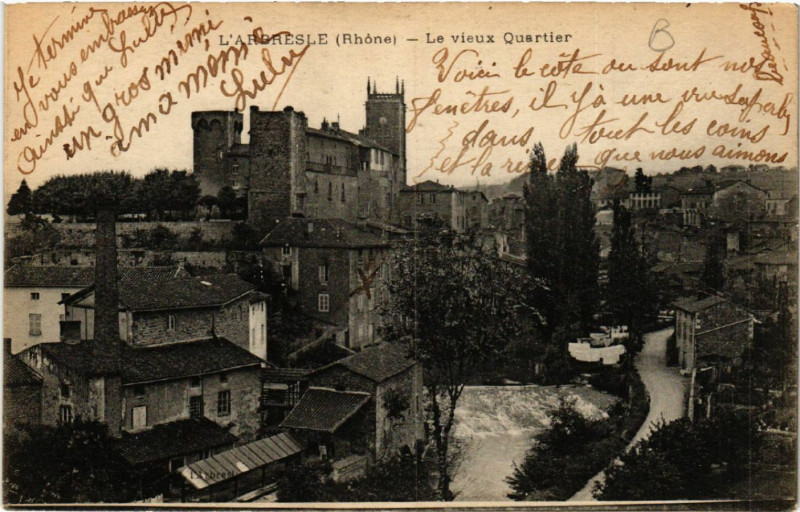 L'ARBRESLE (Rhône) — Le vieux Quartier
Je termine
en vous embrassant
Ainsi que Lulu
un gros mimi
à ma mémé
Lulu
Voici le côté où sont nos
fenêtres, il y a une vue
dans tout les coins
et la que nous aimons
beaucoup
B
l'Arbresle